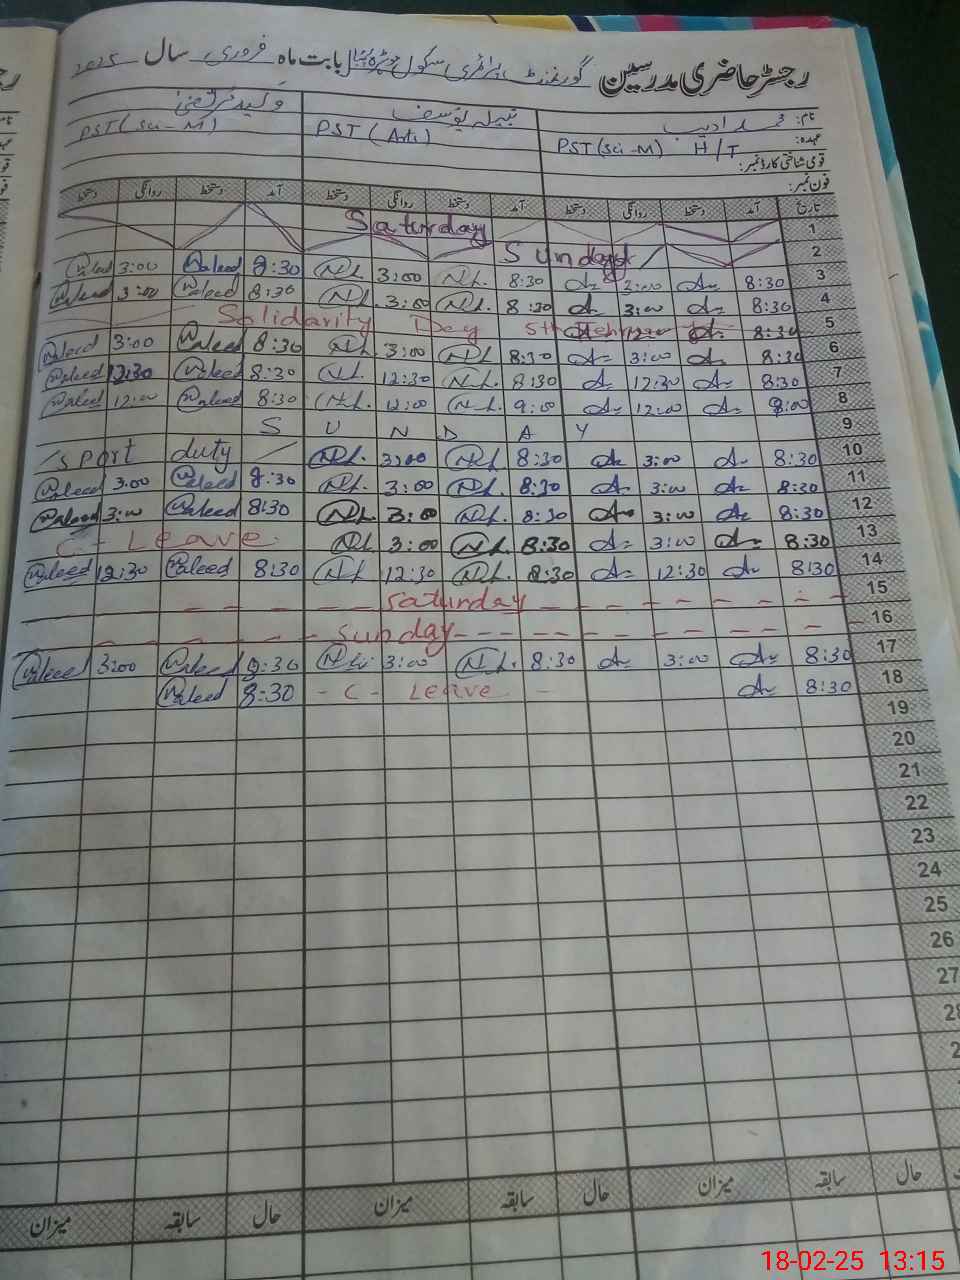 رجسٹر حاضری مدرسین گورنمنٹ پرائمری سکول بابت ماہ فروری سال 2025
نام: محمد ادیب نبیلہ یوسف ولید مرتضیٰ
عہدہ: PST (Sci-M) H/T PST (Arts) PST (Sci-M)
قومی شناختی کارڈ نمبر:
فون نمبر:
تاریخ آمد دستخط روانگی دستخط آمد دستخط روانگی دستخط آمد دستخط روانگی دستخط
Saturday 1
Sunday 2
Waleed 3:00 Waleed 8:30 N.L. 3:00 N.L. 8:30 3:00 8:30 3
Waleed 3:00 Waleed 8:30 N.L. 3:00 N.L. 8:30 3:00 8:30 4
Solidarity Day 5th 8:30 5
Waleed 3:00 Waleed 8:30 N.L. 3:00 N.L. 8:30 3:00 8:30 6
Waleed 12:30 Waleed 8:30 N.L. 12:30 N.L. 8:30 12:30 8:30 7
Waleed 12:00 Waleed 8:30 N.L. 12:00 N.L. 9:00 12:00 9:00 8
S U N D A Y 9
sport duty N.L. 3:00 N.L. 8:30 3:00 8:30 10
Waleed 3:00 Waleed 8:30 N.L. 3:00 N.L. 8:30 3:00 8:30 11
Waleed 3:00 Waleed 8:30 N.L. 3:00 N.L. 8:30 3:00 8:30 12
C - Leave N.L. 3:00 N.L. 8:30 3:00 8:30 13
Waleed 12:30 Waleed 8:30 N.L. 12:30 N.L. 8:30 12:30 8:30 14
Saturday 15
Sunday 16
Waleed 3:00 Waleed 8:30 N.L. 3:00 N.L. 8:30 3:00 8:30 17
Waleed 8:30 - C - Leave - 8:30 18
19
20
21
22
23
24
25
26
27
28
حال سابقہ میزان حال سابقہ میزان حال سابقہ میزان
18-02-25 13:15